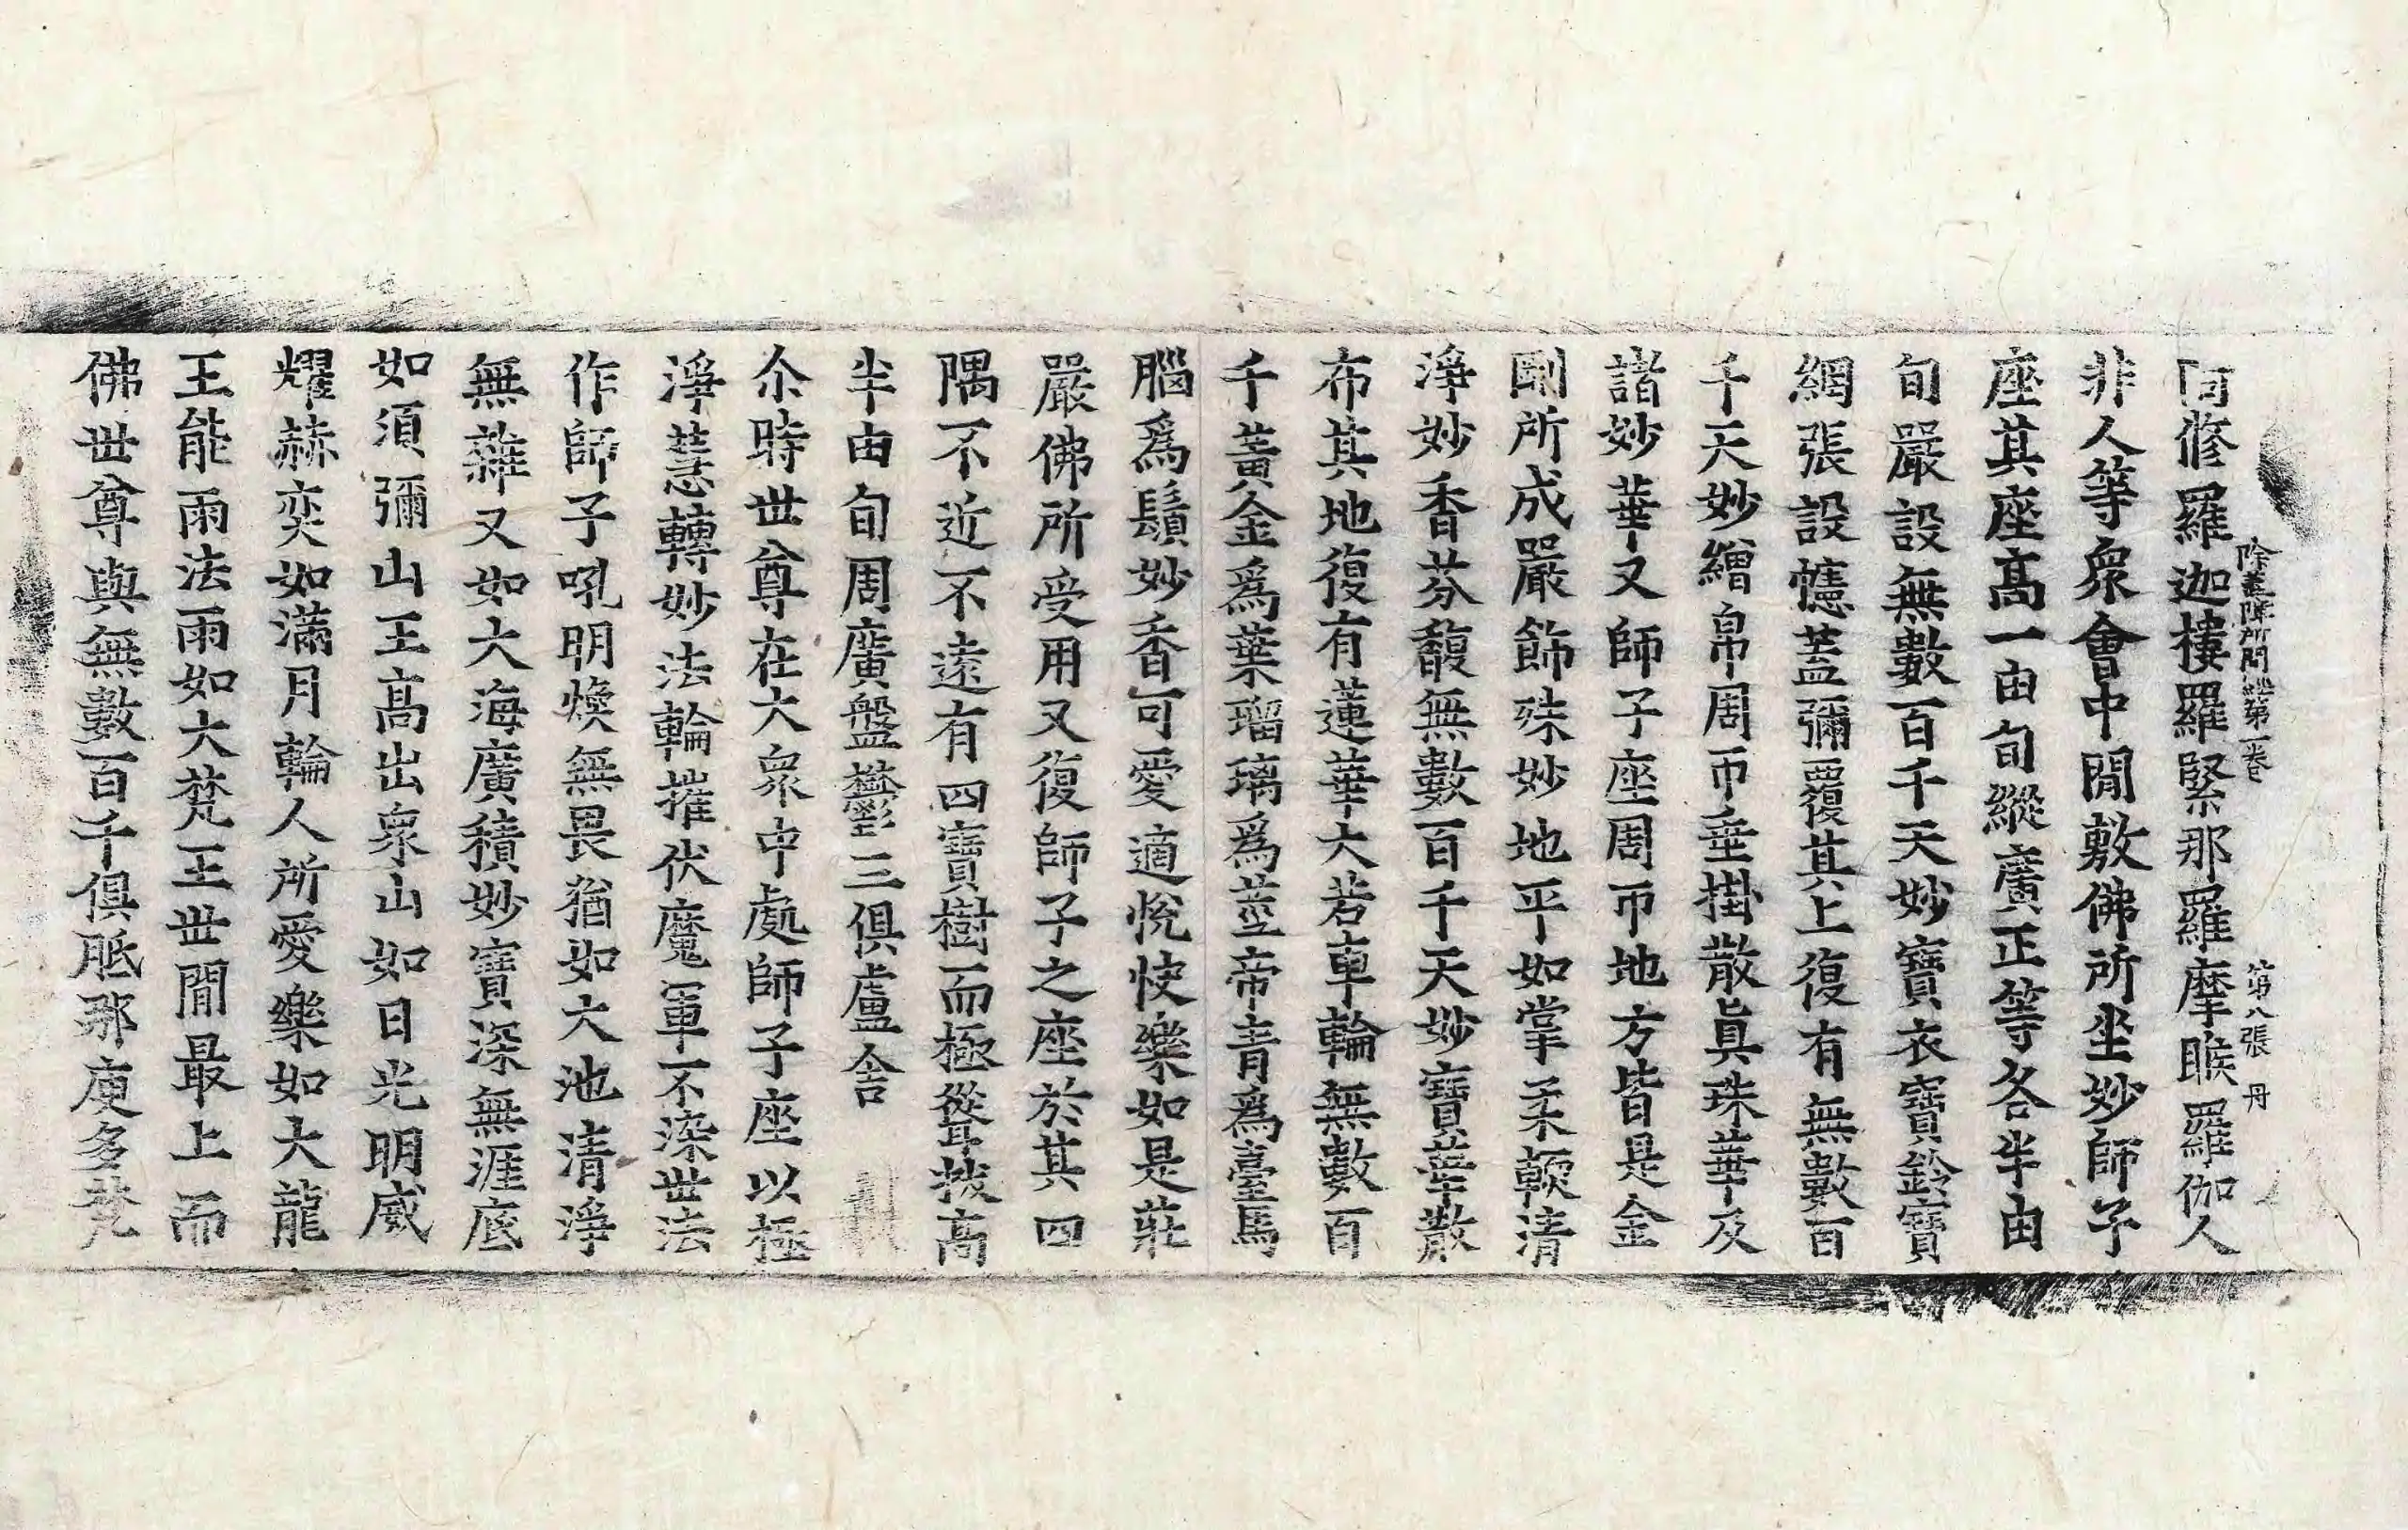 除蓋障所問經第一卷 第八張 丹
阿修羅迦樓羅緊那羅摩睺羅伽人
非人等衆會中閒敷佛所坐妙師子
座其座高一由旬縱廣正等各半由
旬嚴設無數百千天妙寶衣寶鈴寶
網張設幰蓋彌覆其上復有無數百
千天妙繒帛周帀垂掛散眞珠華及
諸妙華又師子座周帀地方皆是金
剛所成嚴飾殊妙地平如掌柔輭清
淨妙香芬馥無數百千天妙寶華散
布其地復有蓮華大若車輪無數百
千黃金爲葉瑠璃爲莖帝青爲臺馬
腦爲鬚妙香可愛適悅快樂如是莊
嚴佛所受用又復師子之座於其四
隅不近不遠有四寶樹而極聳拔高
半由旬周廣盤鬱三俱盧舍
尒時世尊在大衆中處師子座以極
淨慧轉妙法輪摧伏魔軍不染世法
作師子吼明煥無畏猶如大池清淨
無雜又如大海廣積妙寶深無涯底
如須彌山王高出衆山如日光明威
耀赫奕如滿月輪人所愛樂如大龍
王能雨法雨如大梵王世閒最上而
佛世尊與無數百千俱胝那庾多梵